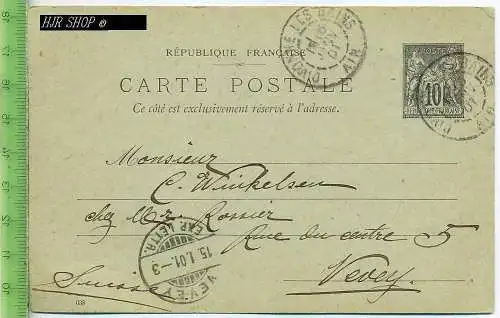 HJR SHOP ®
RÉPUBLIQUE FRANÇAISE
CARTE POSTALE
Ce côté est exclusivement réservé à l'adresse.
POSTES
10
DIVONNE LES BAINS
AIN
Monsieur
C. Winkelsen
chez Mr. Rossier
Rue du centre 5
Vevey.
Suisse
VEVEY
15.I.01.-3
EXP. LETTR.